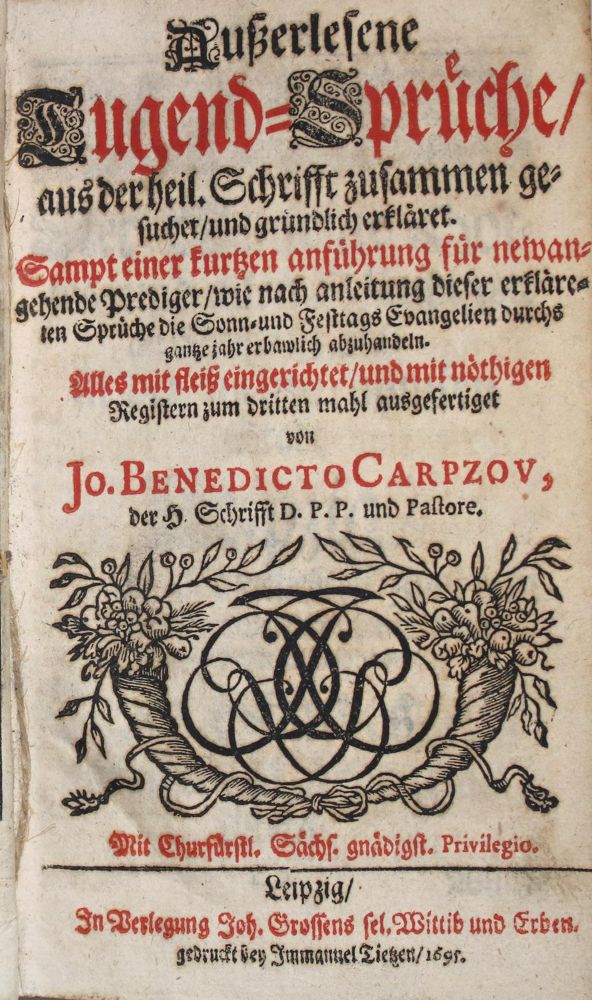 Außerlesene
Tugend-Spruͤche/
aus der heil. Schrifft zusammen ge-
suchet/und gründlich erkläret.
Sampt einer kurtzen anführung für newan-
gehende Prediger/wie nach anleitung dieser erkläre-
ten Sprüche die Sonn-und Festtags Evangelien durchs
gantze jahr erbawlich abzuhandeln.
Alles mit fleiß eingerichtet/und mit nöthigen
Registern zum dritten mahl ausgefertiget
von
JO. BENEDICTO CARPZOV,
der H. Schrifft D. P. P. und Pastore.
Mit Churfürstl. Sächs. gnädigst. Privilegio.
Leipzig/
In Verlegung Joh. Grossens sel. Wittib und Erben.
gedruckt bey Immanuel Tietzen/1695.